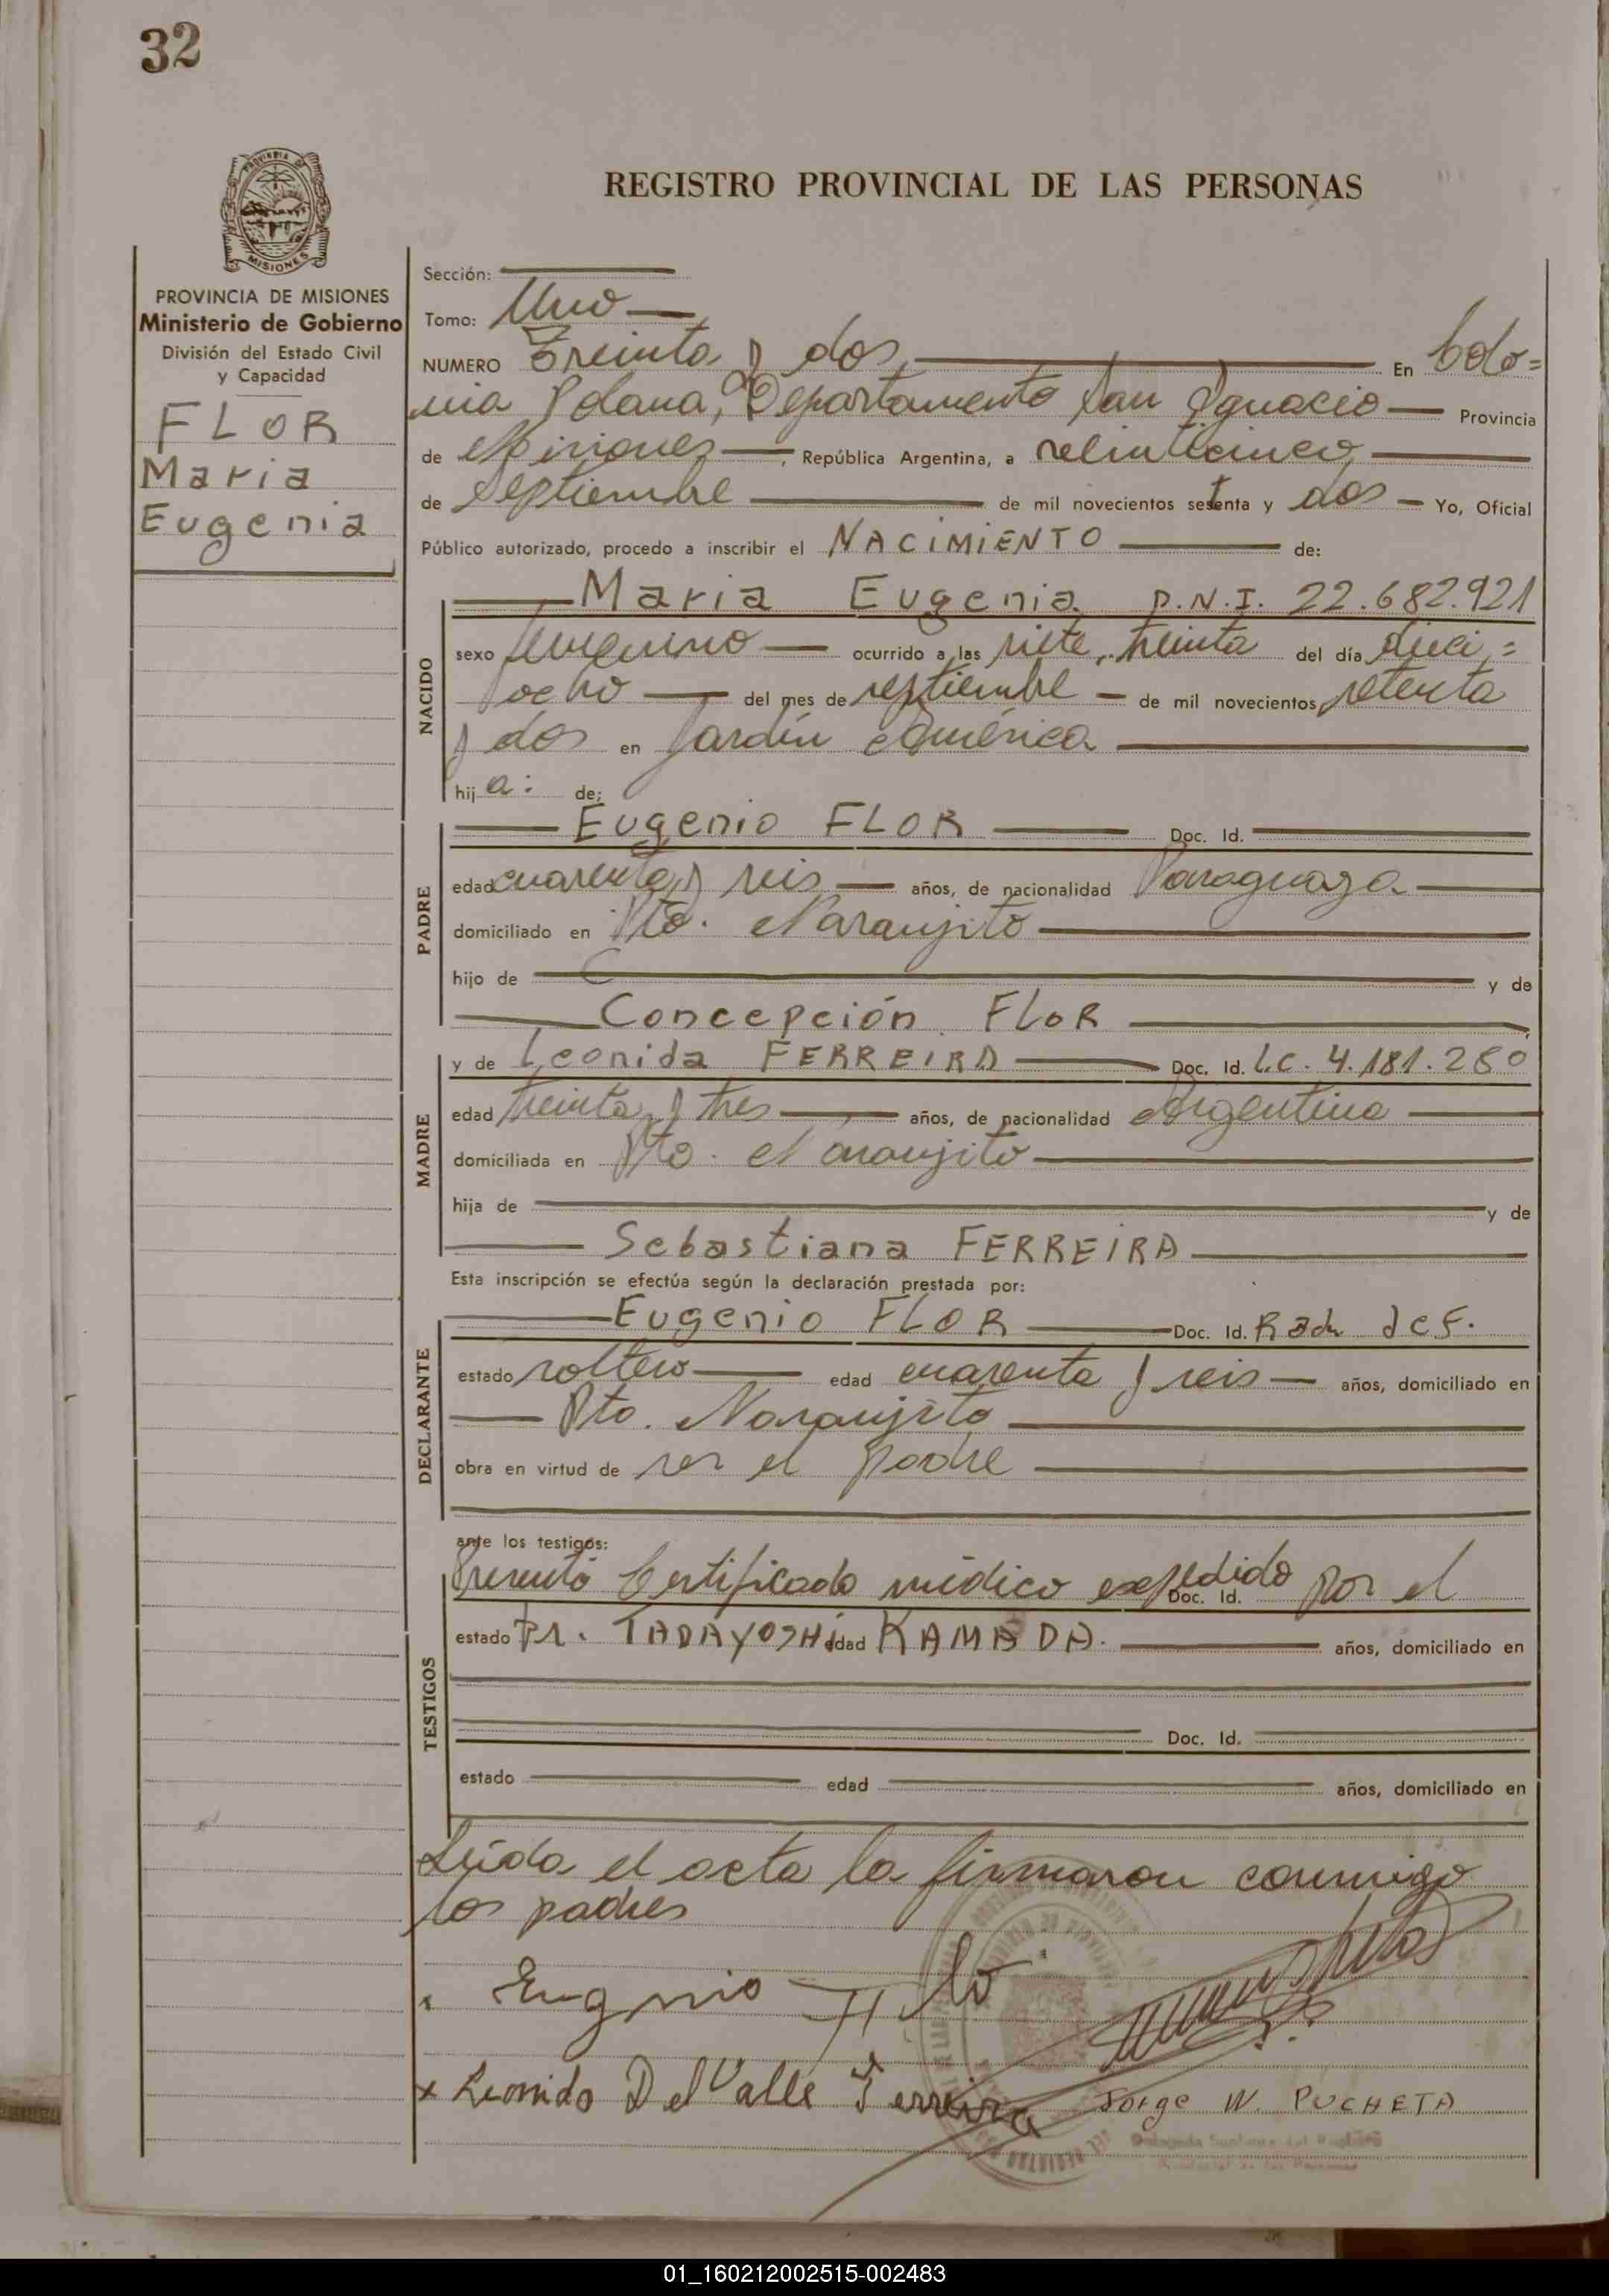 32
PROVINCIA DE
MISIONES
REGISTRO PROVINCIAL DE LAS PERSONAS
PROVINCIA DE MISIONES
Ministerio de Gobierno
División del Estado Civil
y Capacidad
FLOR
Maria
Eugenia
Sección:
Tomo: Uno
NUMERO Treinta y dos, En Colo=
nia Polana, Departamento San Ignacio Provincia
de Misiones, República Argentina, a veinticinco
de septiembre de mil novecientos setenta y dos Yo, Oficial
Público autorizado, procedo a inscribir el NACIMIENTO de:
NACIDO
Maria Eugenia D.N.I. 22.682.921
sexo femenino ocurrido a las siete, treinta del día dieci=
ocho del mes de septiembre de mil novecientos setenta
y dos en Jardín América
hij a: de:
PADRE
Eugenio FLOR Doc. Id.
edad cuarenta y seis años, de nacionalidad Paraguaya
domiciliado en Pto. Naranjito
hijo de y de
Concepción FLOR
MADRE
y de Leonida FERREIRA Doc. Id. L.C. 4.181.280
edad treinta y tres años, de nacionalidad Argentina
domiciliada en Pto. Naranjito
hija de y de
Sebastiana FERREIRA
Esta inscripción se efectúa según la declaración prestada por:
DECLARANTE
Eugenio FLOR Doc. Id.
estado soltero edad cuarenta y seis años, domiciliado en
Pto. Naranjito
obra en virtud de ser el padre
ante los testigos:
TESTIGOS
Presentó Certificado médico expedido por el
Doc. Id.
estado Dr. TADAYOSHI edad KAMADA. años, domiciliado en
Doc. Id.
estado edad años, domiciliado en
Leída el acta la firmaron conmigo
los padres
Eugnio Flo
x Leonida Del Valle Ferreira
Jorge W. PUCHETA
01_160212002515-002483